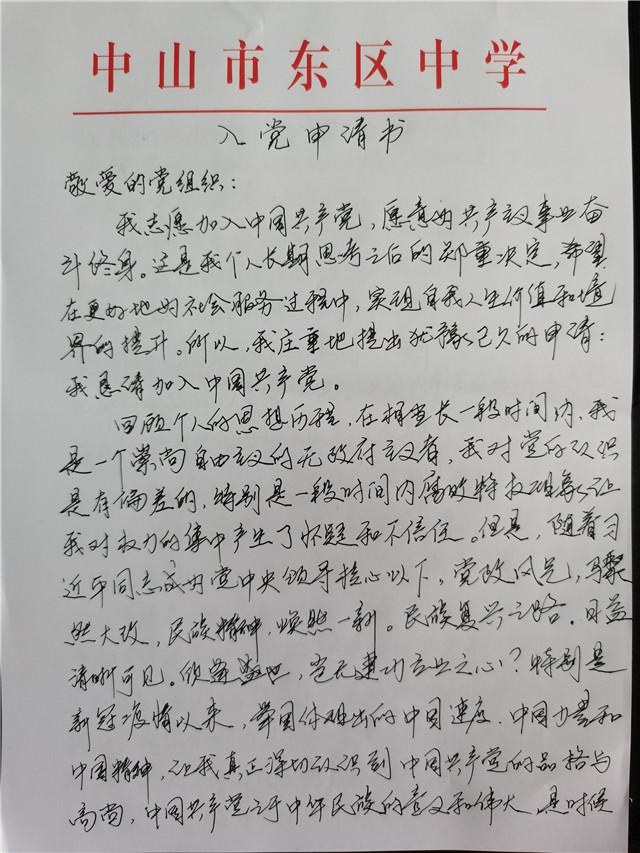 中山市东区中学
入党申请书
敬爱的党组织：
我志愿加入中国共产党，愿意为共产主义事业奋
斗终身。这是我个人长期思考之后的郑重决定，希望
在更好地为社会服务过程中，实现自我人生价值和境
界的提升。所以，我庄重地提出犹豫已久的申请：
我恳请加入中国共产党。
回顾个人的思想历程，在相当长一段时间内，我
是一个崇尚自由主义的无政府主义者，我对党的认识
是有偏差的，特别是一段时间内腐败特权现象让
我对权力的集中产生了怀疑和不信任。但是，随着习
近平同志成为党中央领导核心以下，党政风气，骤
然大改，民族精神，焕然一新。民族复兴之路，日益
清晰可见。欣逢盛世，岂无建功立业之心？特别是
新冠疫情以来，举国体现出的中国速度、中国力量和
中国精神，让我真正深切认识到中国共产党的品格与
高尚，中国共产党之于中华民族的意义和伟大，是时候